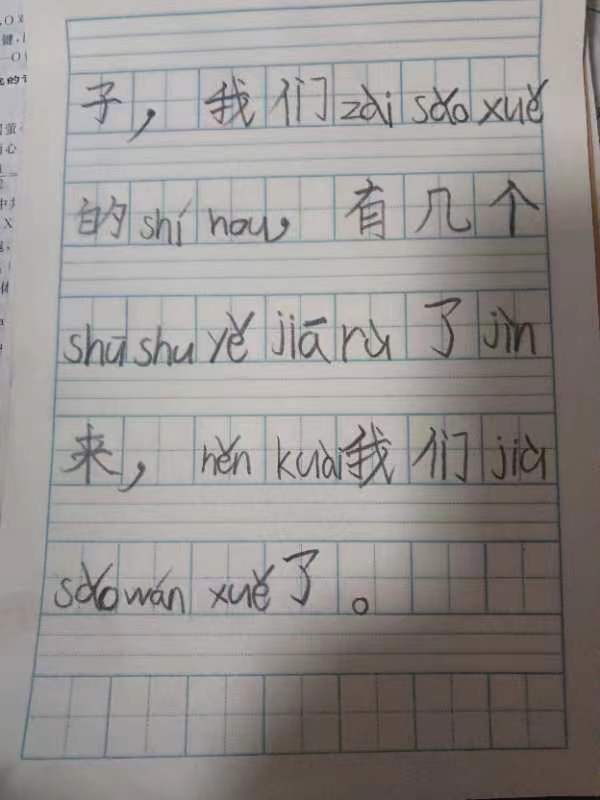 子，我们zài sǎo xuě
的shí hou，有几个
shū shu yě jiā rù了jìn
来，hěn kuài我们jiù
sǎo wán xuě了。